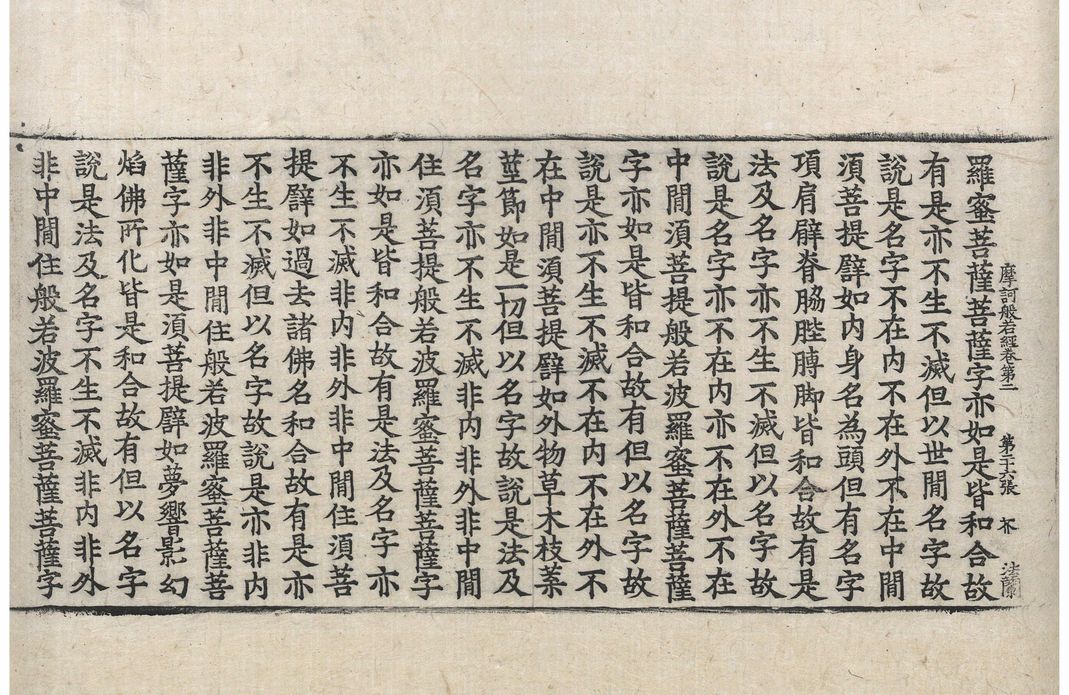 摩訶般若經卷第二 第二十六張 芥
羅蜜菩薩菩薩字亦如是皆和合故
有是亦不生不滅但以世閒名字故
說是名字不在內不在外不在中閒
須菩提譬如內身名為頭但有名字
項肩臂脊脇䏶膊脚皆和合故有是
法及名字亦不生不滅但以名字故
說是名字亦不在內亦不在外不在
中閒須菩提般若波羅蜜菩薩菩薩
字亦如是皆和合故有但以名字故
說是亦不生不滅不在內不在外不
在中閒須菩提譬如外物草木枝葉
莖節如是一切但以名字故說是法及
名字亦不生不滅非內非外非中閒
住須菩提般若波羅蜜菩薩菩薩字
亦如是皆和合故有是法及名字亦
不生不滅非內非外非中閒住須菩
提譬如過去諸佛名和合故有是亦
不生不滅但以名字故說是亦非內
非外非中閒住般若波羅蜜菩薩菩
薩字亦如是須菩提譬如夢響影幻
焰佛所化皆是和合故有但以名字
說是法及名字不生不滅非內非外
非中閒住般若波羅蜜菩薩菩薩字